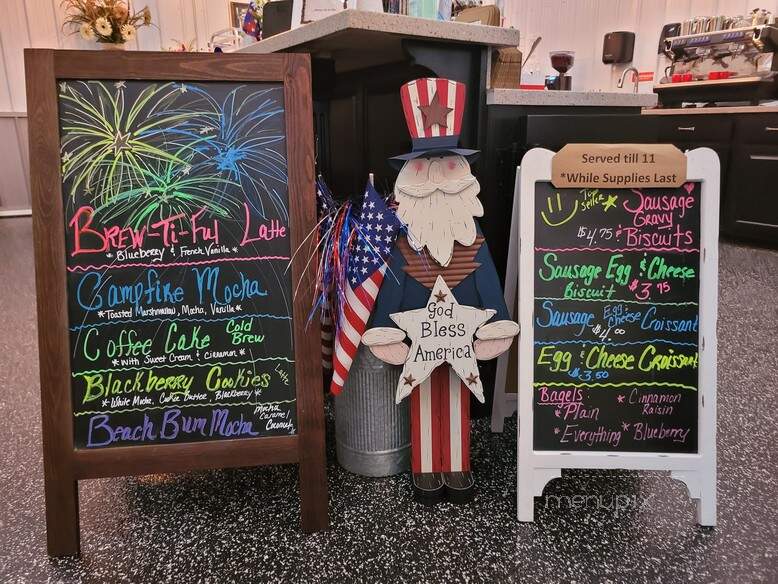 Brew-Ti-Ful Latte
* Blueberry & French Vanilla *
Campfire Mocha
* Toasted Marshmallow, Mocha, Vanilla *
Coffee Cake Cold Brew
* with Sweet Cream & Cinnamon *
Blackberry Cookies Latte
* White Mocha, Cookie Butter, Blackberry *
Beach Bum Mocha
Mocha
Caramel
Coconut
God
Bless
America
Served till 11
*While Supplies Last
Top Seller
Sausage
Gravy
$4.75 & Biscuits
Sausage Egg & Cheese
Biscuit $3.95
Sausage Egg & Cheese Croissant
$4.00
Egg & Cheese Croissant
$3.50
Bagels:
* Plain
* Cinnamon Raisin
* Everything
* Blueberry
menupix